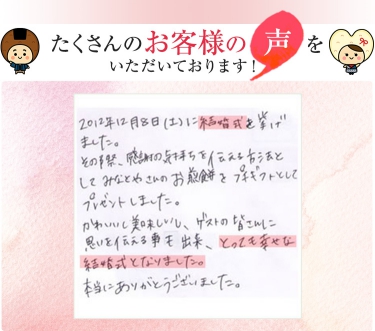 たくさんのお客様の声を
いただいております!
2012年12月8日(土)に結婚式を挙げ
ました。
その際、感謝の気持ちを伝える方法と
して みなとやさんのお煎餅をプチギフトとして
プレゼントしました。
かわいいし美味しいし、ゲストの皆さんに
思いを伝える事も出来、とっても幸せな
結婚式となりました。
本当にありがとうございました。